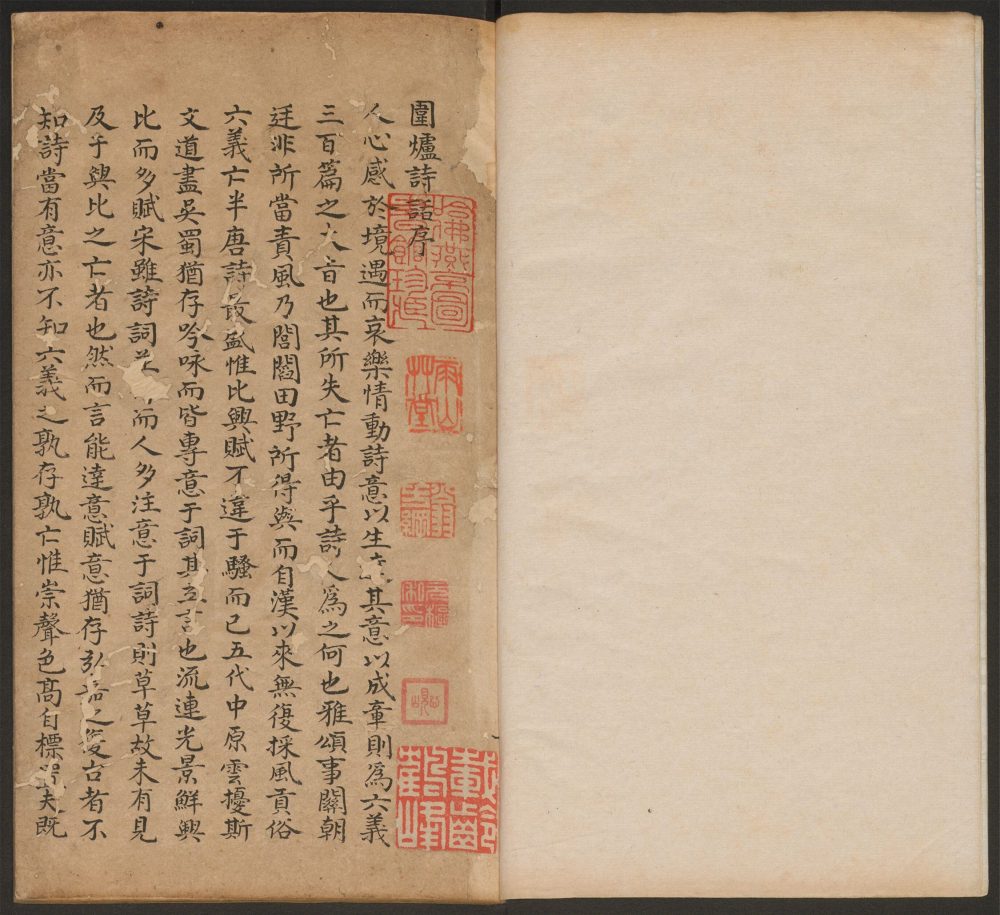 圍爐詩話序
人心感於境遇而哀樂情動詩意以生達其意以成章則為六義
三百篇之大旨也其所失亡者由乎詩人為之何也雅頌事關朝
廷非所當責風乃閭閻田野所得與而自漢以來無復採風貢俗
六義亡半唐詩最盛惟比興賦不違于騷而已五代中原雲擾斯
文道盡吳蜀猶存吟咏而皆專意于詞其立言也流連光景鮮興
比而多賦宋雖詩詞並而人多注意于詞詩則草草故未有見
及乎興比之亡者也然而言能達意賦意猶存弘嘉之復古者不
知詩當有意亦不知六義之孰存孰亡惟崇聲色高自標置夫既
雨山草堂
戴齡鶴峰